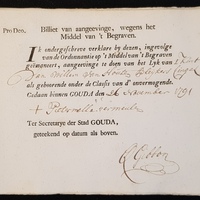 Pro Deo. Billiet van aangeevinge, wegens het
Middel van 't Begraven.
IK ondergeschreve verklare by dezen, ingevolge
van de Ordonnantie op 't Middel van 't Begraven
geëmaneert, aangeevinge te doen van het Lyk van
Jan Willem van
als gehoorende onder de Classis van d' onvermogende.
Gedaan binnen GOUDA den 26 November 1791
+ Pieternella Vermeule
Ter Secretarye der Stad GOUDA,
geteekend op datum als boven.